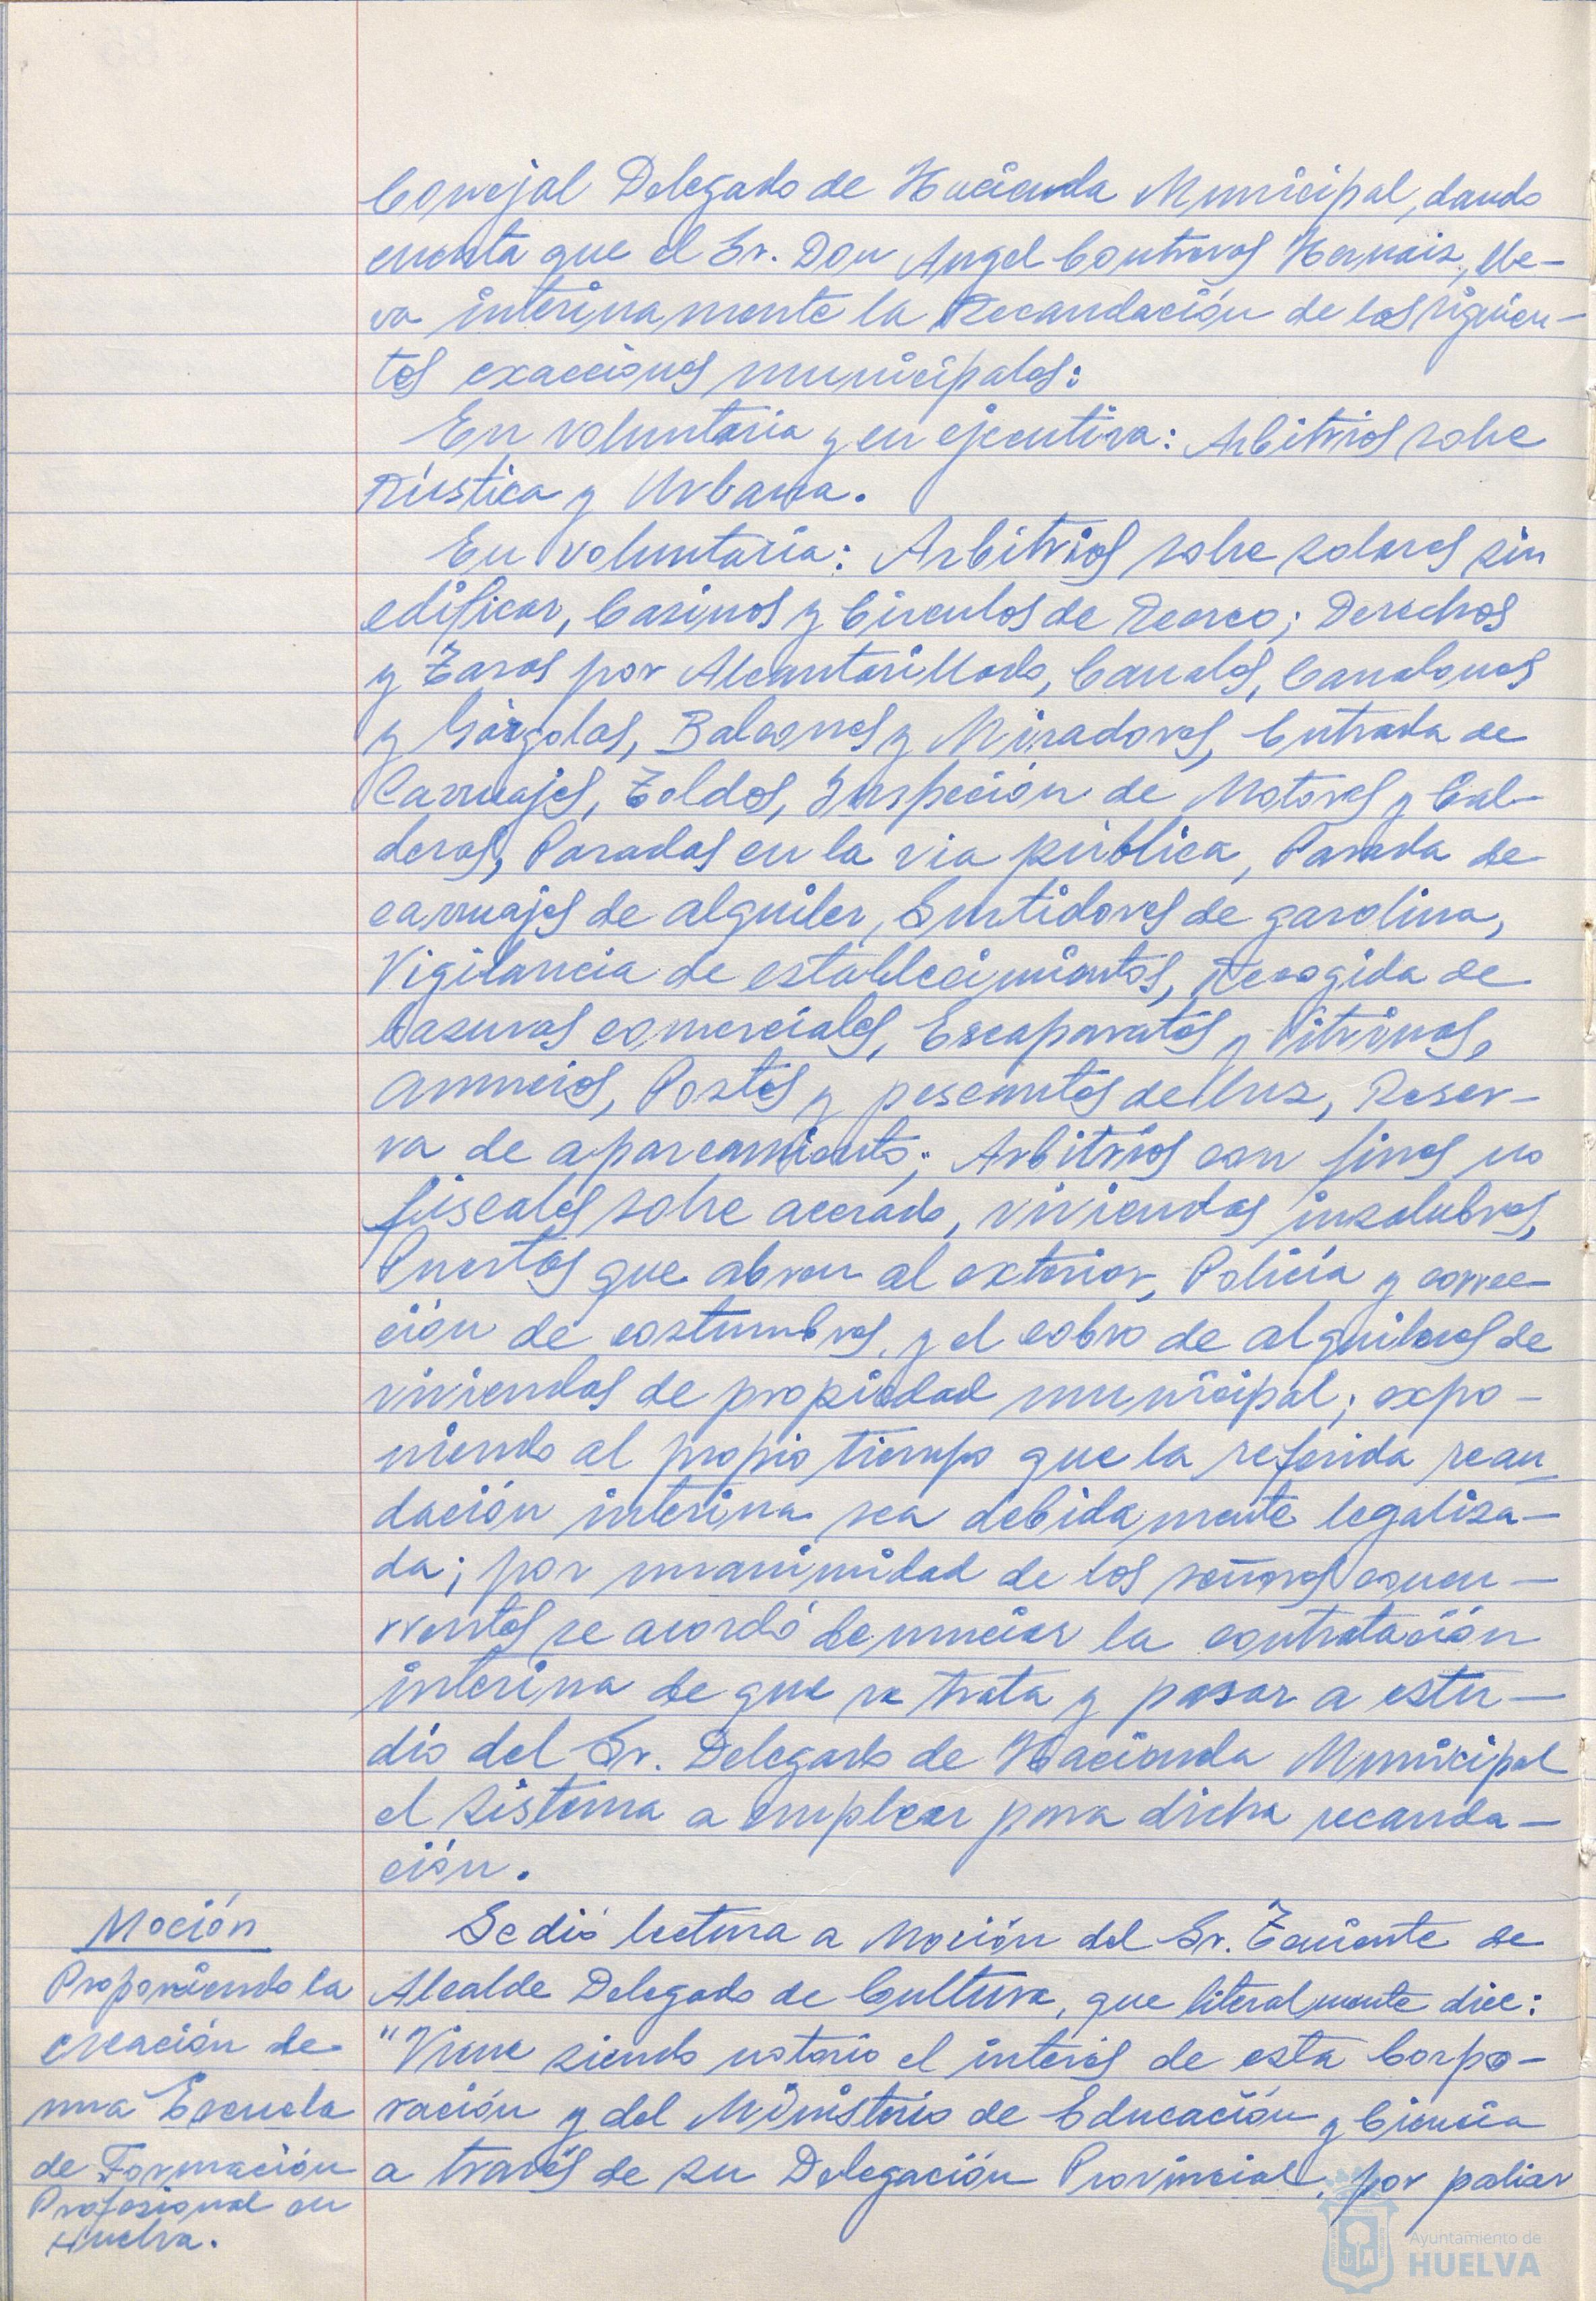 Concejal Delegado de Hacienda Municipal, dando
cuenta que el Sr. Don Angel Contreras Hernaiz, lle-
va interinamente la Recaudación de las siguien-
tes exacciones municipales:
En voluntaria y en ejecutiva: Arbitrios sobre
Rústica y Urbana.
En voluntaria: Arbitrios sobre solares sin
edificar, Casinos y Circulos de Recreo; Derechos
y Tasas por Alcantarillado, Canales, Canalones
y Gárgolas, Balcones y Miradores, Entrada de
Carruajes, Toldos, Inspeción de Motores y Cal-
deras, Paradas en la via pública, Parada de
carruajes de alquiler, Surtidores de gasolina,
Vigilancia de establecimientos, Recogida de
basuras comerciales, Escaparates y Vitrinas,
Anuncios, Postes y pescantes de luz, Reser-
va de aparcamiento; Arbitrios con fines no
fiscales sobre acerado, viviendas insalubres,
Puertas que abren al exterior, Policía y correc-
ción de costumbres, y el cobro de alquileres de
viviendas de propiedad municipal; expo-
niendo al propio tiempo que la referida recau
dación interina sea debidamente legaliza-
da; por unanimidad de los señores concu-
rrentes se acordó denunciar la contratación
interina de que se trata y pasar a estu-
dio del Sr. Delegado de Hacienda Municipal
el sistema a emplear para dicha recauda-
ción.
Moción
Proponiendo la
creación de
una Escuela
de Formación
Profesional en
Huelva.
Se dió lectura a Moción del Sr. Teniente de
Alcalde Delegado de Cultura, que literalmente dice:
"Viene siendo notorio el interés de esta Corpo-
ración y del Ministerio de Educación y Ciencia
a través de su Delegación Provincial, por paliar
Ayuntamiento de
HUELVA